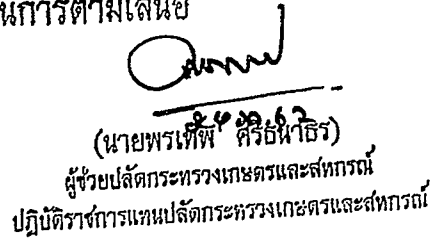 นการตามเสนอ
(นายพรเทพ ศิริธนาธร)
ผู้ช่วยปลัดกระทรวงเกษตรและสหกรณ์
ปฏิบัติราชการแทนปลัดกระทรวงเกษตรและสหกรณ์